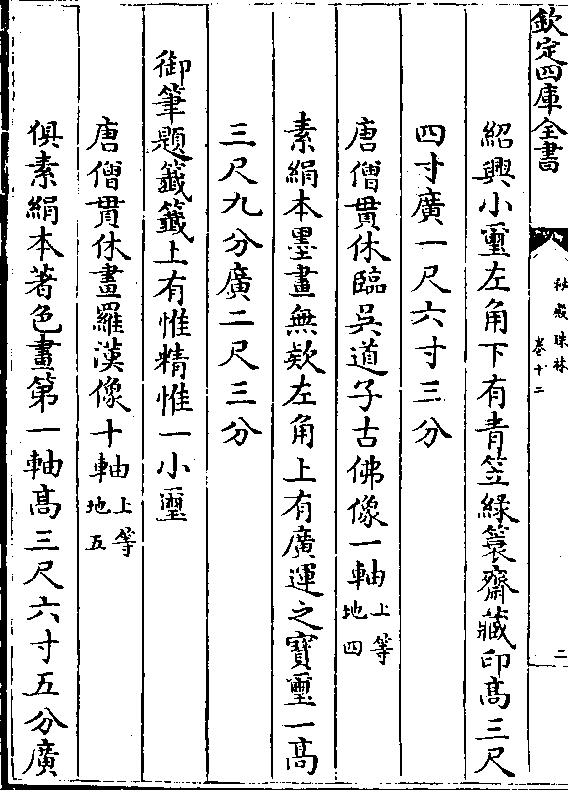 欽定四庫全書
秘殿珠林
卷十二
二
紹興小璽左角下有青笠緑簑齋藏印髙三尺
四寸廣一尺六寸三分
唐僧貫休臨吳道子古佛像一軸上等地四
素絹本墨畫無欵左角上有廣運之寳璽一髙
三尺九分廣二尺三分
御筆題籤籤上有惟精惟一小璽
唐僧貫休畫羅漢像十軸上等地五
俱素絹本著色畫第一軸髙三尺六寸五分廣